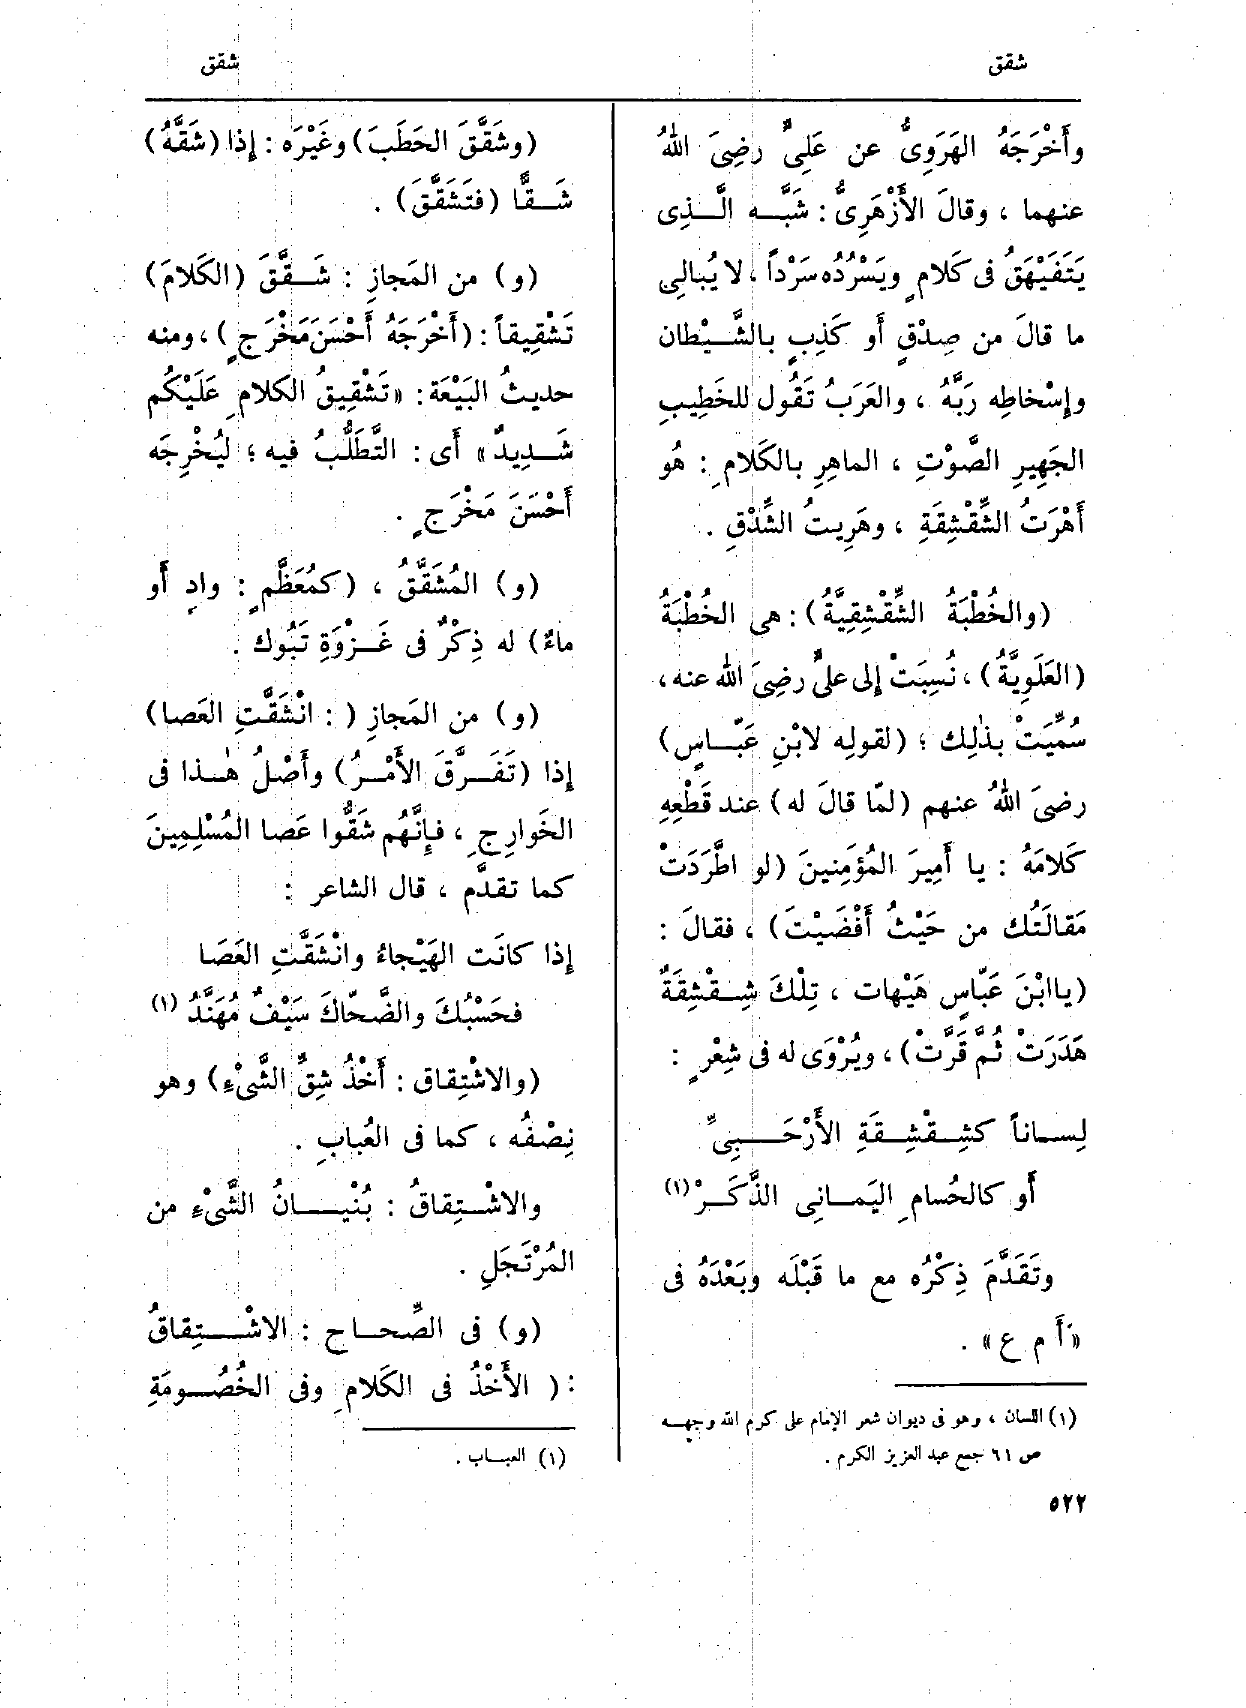 شقق
شقق
وأَخْرَجَهُ الهَرَوِىُّ عن عَلِىٍّ رضِىَ اللهُ
عنهما ، وقالَ الأَزْهَرِىُّ : شَبَّه الَّذِى
يَتَفَيْهَقُ فى كَلامٍ ويَسْرُدُه سَرْداً ، لا يُبالِى
ما قالَ من صِدْقٍ أَو كَذِبٍ بالشَّيْطان
وإِسْخاطِه رَبَّهُ ، والعَرَبُ تَقُول للخَطِيبِ
الجَهِيرِ الصَّوْتِ ، الماهِرِ بالكَلامِ : هُو
أَهْرَتُ الشِّقْشِقَةِ ، وهَرِيتُ الشِّدْقِ .
(والخُطْبَةُ الشِّقْشِقِيَّةُ) : هى الخُطْبَةُ
(العَلَوِيَّةُ) ، نُسِبَتْ إِلى علىٍّ رضِىَ الله عنه ،
سُمِّيَتْ بذٰلِك ؛ (لقوله لابْنِ عَبّاسٍ)
رضىَ اللهُ عنهم (لمّا قالَ له) عند قَطْعِهِ
كَلامَهُ : يا أَمِيرَ المُؤمِنينَ (لو اطَّرَدَتْ
مَقالَتُك من حَيْثُ أَفْضَيْتَ) ، فقالَ :
(ياابْنَ عَبّاسٍ هَيْهات ، تِلْكَ شِقْشِقَةٌ
هَدَرَتْ ثُمَّ قَرَّتْ) ، ويُرْوَى له فى شِعْرٍ :
لِساناً كشِقْشِقَةِ الأَرْحَبِىِّ
أَو كالحُسامِ اليَمانِى الذَّكَرْ (١)
وتَقَدَّمَ ذِكْرُه مع ما قَبْلَه وبَعْدَهُ فى
«أَ م ع» .
(١) اللسان ، وهو فى ديوان شعر الإمام على كرم الله وجهه
ص ٦١ جمع عبد العزيز الكرم .
٥٢٢
(وشَقَّقَ الحَطَبَ) وغَيْرَه : إِذا (شَقَّهُ)
شَقًّا (فتَشَقَّقَ) .
(و) من المَجازِ : شَقَّقَ (الكَلامَ)
تَشْقِيقاً : (أَخْرَجَهُ أَحْسَنَ مَخْرَجٍ) ، ومنه
حديثُ البَيْعَة : «تَشْقِيقُ الكلامِ عَلَيْكُم
شَدِيدٌ» أَى : التَّطَلُّبُ فيه ؛ ليُخْرِجَه
أَحْسَنَ مَخْرَجٍ .
(و) المُشَقَّقُ ، (كمُعَظَّمٍ : وادٍ أَو
ماءٌ) له ذِكْرٌ فى غَزْوَةِ تَبُوك .
(و) من المَجازِ ( : انْشَقَّتِ العَصا)
إِذا (تَفَرَّقَ الأَمْرُ) وأَصْلُ هٰذا فى
الخَوارِجِ ، فإِنَّهُم شَقُّوا عَصا المُسْلِمِينَ
كما تقدَّم ، قال الشاعر :
إِذا كانَت الهَيْجاءُ وانْشَقَّتِ العَصَا
فحَسْبُكَ والضَّحّاكَ سَيْفٌ مُهَنَّدُ (١)
(والاشْتِقاق : أَخْذُ شِقِّ الشَّىْءِ) وهو
نِصْفُه ، كما فى العُبابِ .
والاشْتِقاقُ : بُنْيانُ الشَّىْءِ من
المُرْتَجَلِ .
(و) فى الصِّحاح : الاشْتِقاقُ
: ( الأَخْذُ فى الكَلامِ وفى الخُصُومَةِ
(١) العباب .